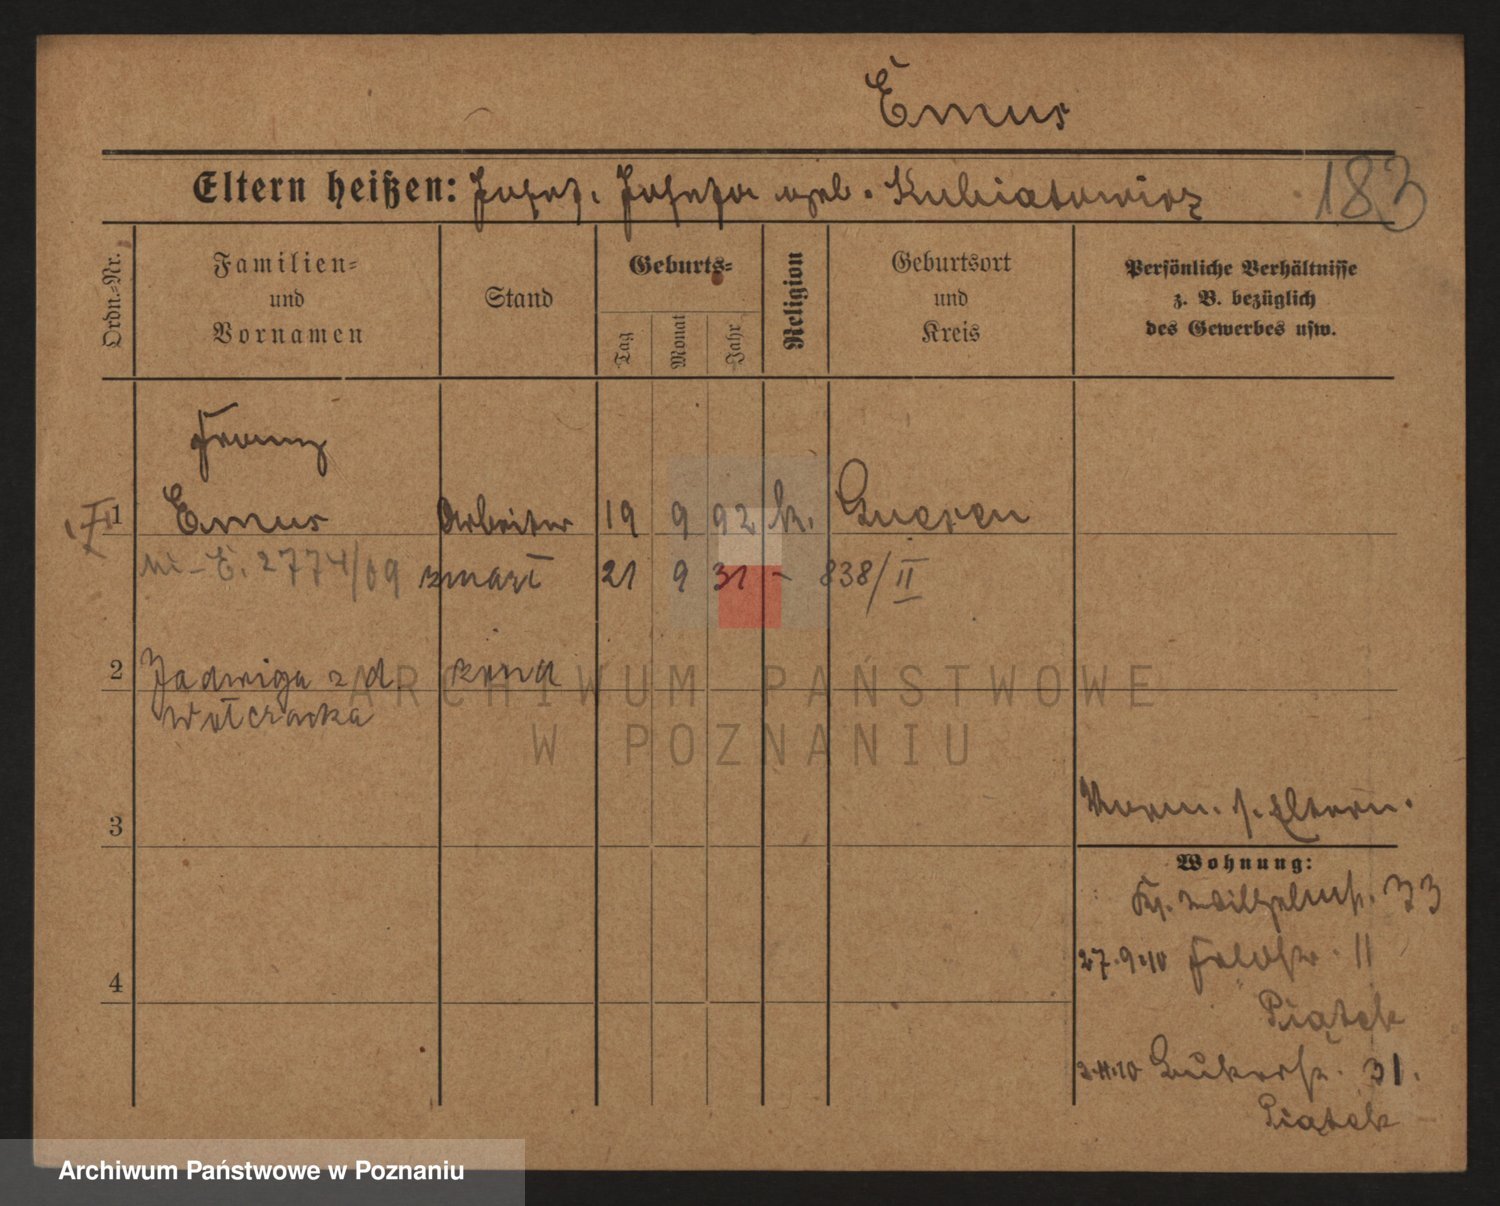 Emus
Eltern heißen: Josef, Josefa geb. Kubiatowicz 183
Ordn.-Nr.
Familien-
und
Vornamen
Stand
Geburts-
Tag
Monat
Jahr
Religion
Geburtsort
und
Kreis
Persönliche Verhältnisse
z. B. bezüglich
des Gewerbes usw.
Franz
1 Emus Arbeiter 19 9 92 k. Gnesen
E. 2774/09 zmarł 21 9 31 - 838/II
2 Jadwiga z d. żona
ARCHIWUM PAŃSTWOWE
W POZNANIU
3
s. Eltern.
Wohnung:
Wilhelmst. 33
27.9.10 Feldstr. 11
4
Piątek
2.11.10 31.
Piątek
Archiwum Państwowe w Poznaniu